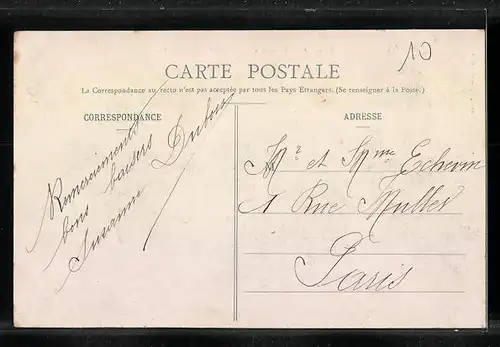 10
CARTE POSTALE
La Correspondance au recto n'est pas acceptée par tous les Pays Etrangers. (Se renseigner à la Poste.)
CORRESPONDANCE
Remerciements
bons baisers
Suzanne Dubois
ADRESSE
Mr et Mme Echevin
1 Rue Muller
Paris